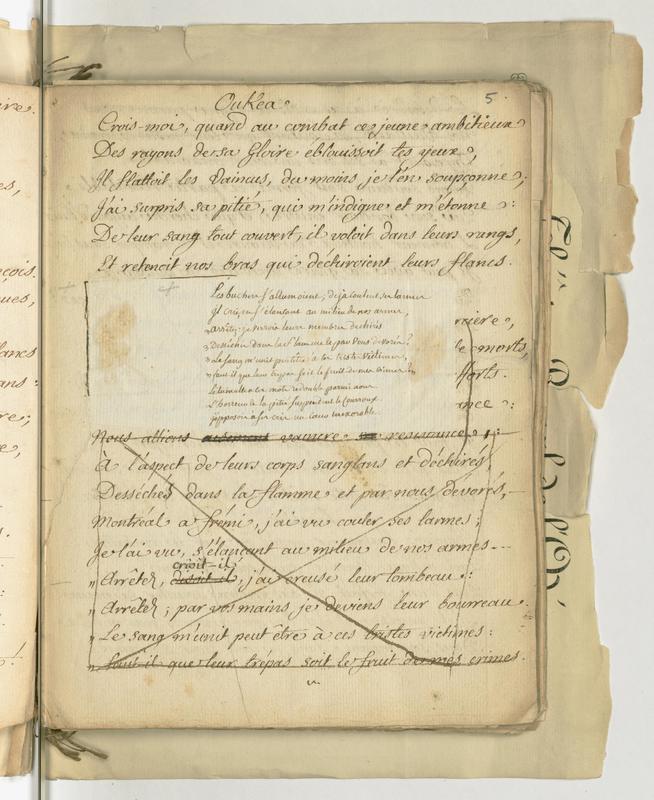 5.
Oukéa.
Crois-moi, quand au combat ce jeune ambitieux
Des rayons de sa Gloire éblouissoit tes yeux,
Il flattoit les Vaincus, du moins je l'en soupçonne;
J'ai surpris sa pitié, qui m'indigne et m'étonne:
De leur sang tout couvert, il voloit dans leurs rangs,
Et retenoit nos bras qui déchiroient leurs flancs.
Les buchers s'allumoient; déja
Il crie, en s'élançant au milieu de nos armes,
arrêtez; je verrois leurs membres déchirés
Dessechés dans la flamme et par vous dévorés?
Le sang m'unit peut-être à ces tristes victimes,
faut il que leur trépas soit le fruit de mes crimes
Le tumulte à ces mots redouble parmi nous
L'horreur la pitié suspendent le courroux
j'oppose à ses cris un coeur inexorable.
morts,
Nous allions vaincre résistance;
À l'aspect de leurs corps sanglans et déchirés
Desséchés dans la flamme et par nous dévorés,
Montréal a frémi, j'ai vu couler ses larmes;
Je l'ai vu, s'élançant au milieu de nos armes---
crioit-il
„ Arrêtez, disoit-il, j'ai creusé leur tombeau:
„ Arrêtez; par vos mains je deviens leur bourreau.
„ Le sang m'unit peut être à ces tristes victimes:
„ faut-il que leur trépas soit le fruit de mes crimes.